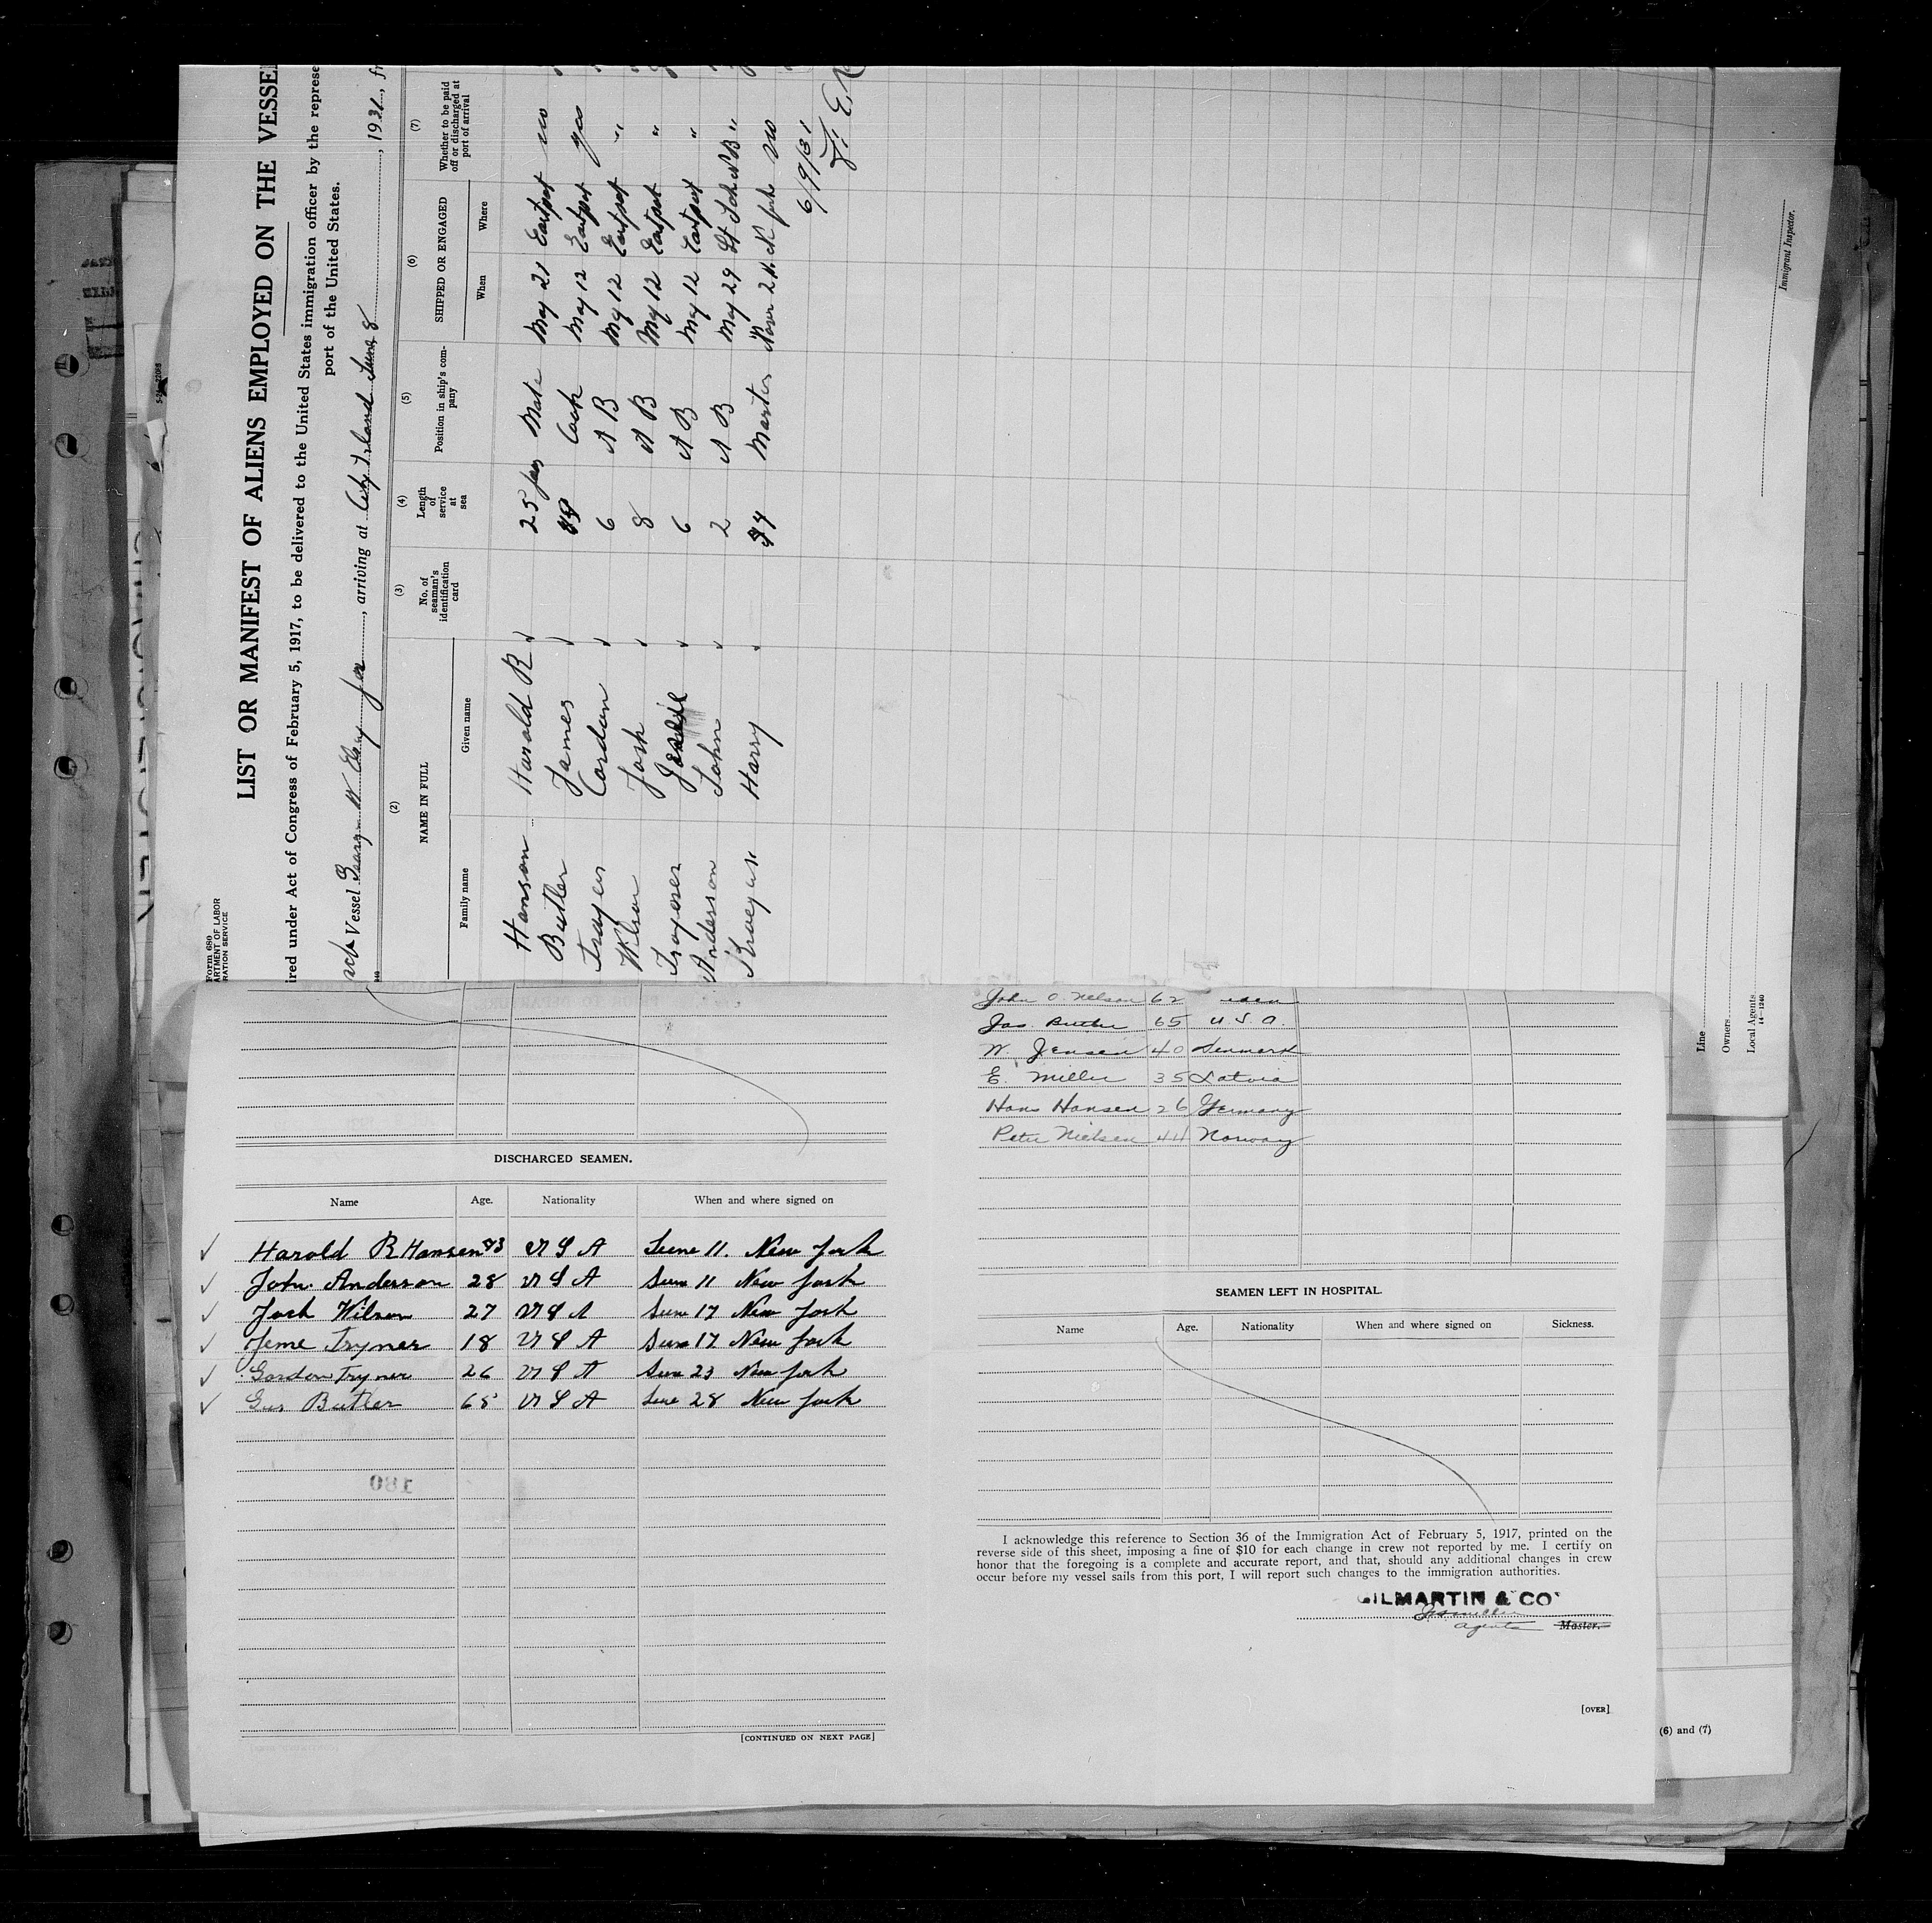 Form 680
ARTMENT OF LABOR
RATION SERVICE
LIST OR MANIFEST OF ALIENS EMPLOYED ON THE VESSEL
ired under Act of Congress of February 5, 1917, to be delivered to the United States immigration officer by the represe
port of the United States.
Vessel W , arriving at City Island June 8, 1931, fr
(2) (3) (4) (5) (6) (7)
NAME IN FULL
No. of seaman's identification card
Length of service at sea
Position in ship's company
SHIPPED OR ENGAGED
Whether to be paid off or discharged at port of arrival
Family name Given name When Where
Hanson Harold R 25 Mate May 21 Eastport no
Butler James Cook May 12 Eastport yes
Gordon 6 A B May 12 Eastport "
Wilson Jack 8 A B May 12 Eastport "
6 A B May 12 Eastport "
Anderson John 2 A B May 29 St John N B "
Harry Master no
6/9/31
Line
Owners
Local Agents
14—1240
Immigrant Inspector.
DISCHARGED SEAMEN.
Name Age. Nationality When and where signed on
Harold R Hansen 43 U S A June 11. New York
John Anderson 28 U S A June 11 New York
Jack Wilson 27 U S A June 17 New York
Jeme Tryner 18 U S A June 17 New York
Gordon Tryner 26 U S A June 23 New York
Gus Butler 65 U S A June 28 New York
180
[CONTINUED ON NEXT PAGE]
John O. Nelson 62
Jas. Butler 65 U.S.A.
W. Jensen 40 Denmark
E. Miller 35 Latvia
Hans Hansen 26 Germany
Peter Nielsen 44 Norway
SEAMEN LEFT IN HOSPITAL.
Name Age. Nationality When and where signed on Sickness.
I acknowledge this reference to Section 36 of the Immigration Act of February 5, 1917, printed on the
reverse side of this sheet, imposing a fine of $10 for each change in crew not reported by me. I certify on
honor that the foregoing is a complete and accurate report, and that, should any additional changes in crew
occur before my vessel sails from this port, I will report such changes to the immigration authorities.
GILMARTIN & CO
agents Master.
[OVER]
(6) and (7)